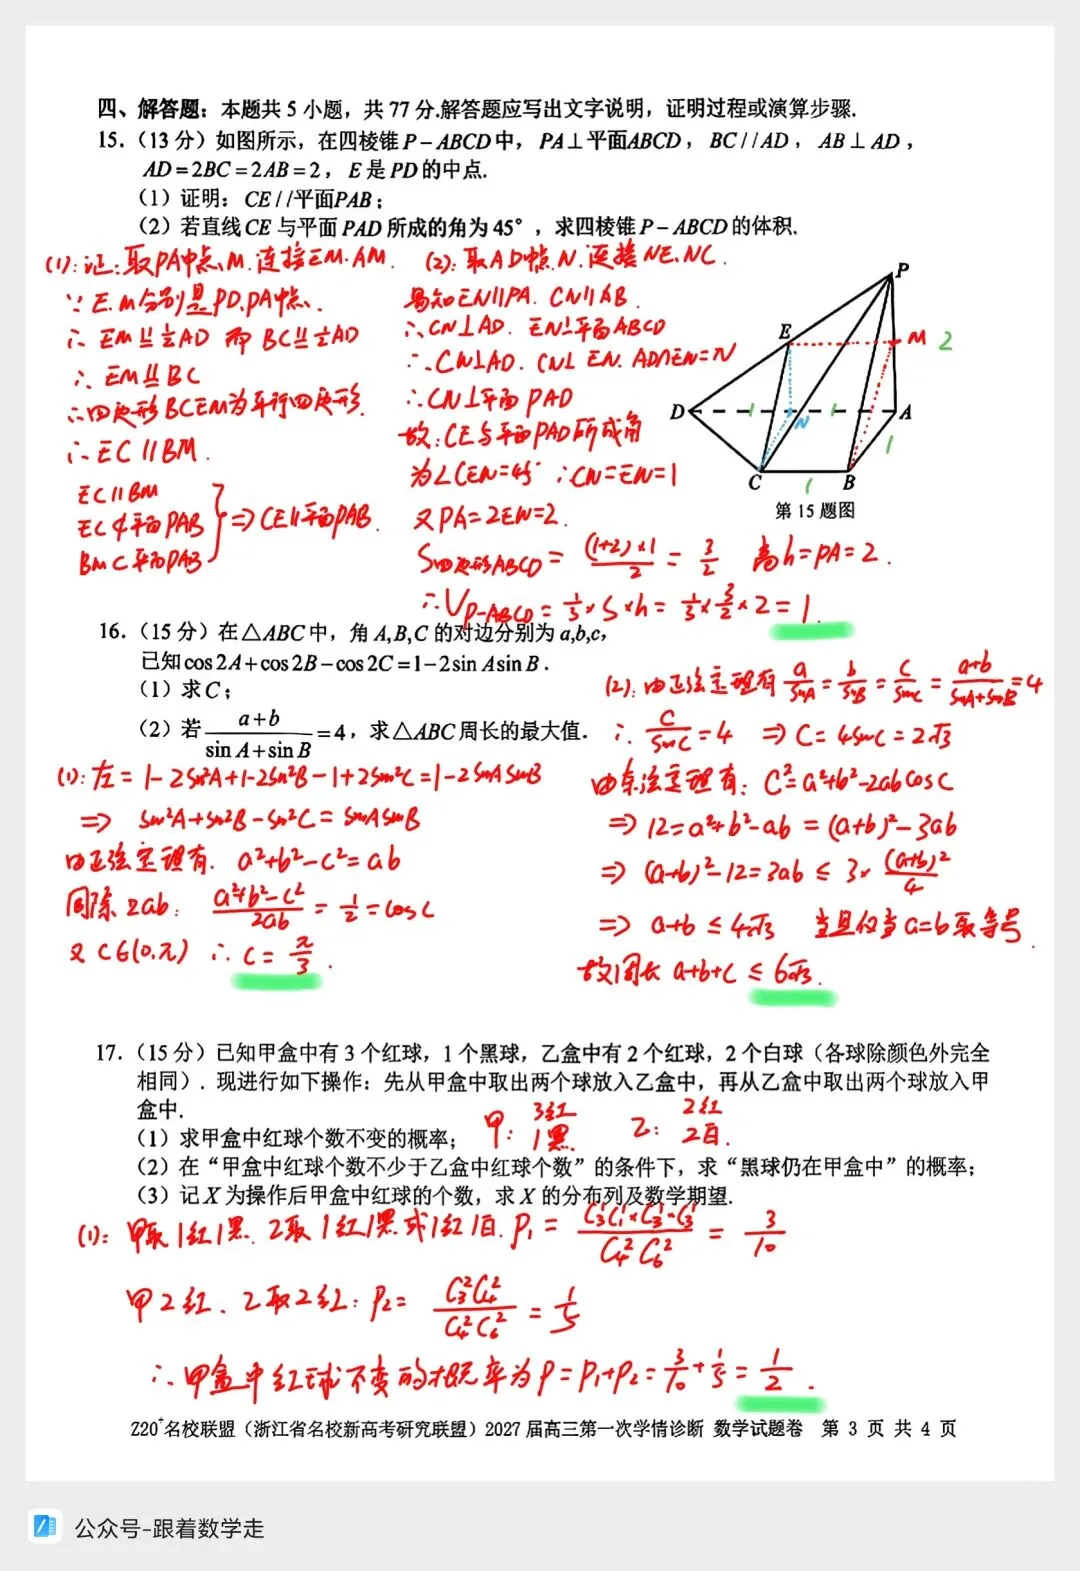 四、解答题：本题共 5 小题，共 77 分.解答题应写出文字说明，证明过程或演算步骤.
15.（13 分）如图所示，在四棱锥 P－ABCD 中，PA⊥平面ABCD，BC//AD，AB⊥AD，
AD=2BC=2AB=2，E 是 PD 的中点.
（1）证明：CE//平面PAB；
（2）若直线 CE 与平面 PAD 所成的角为 45°，求四棱锥 P－ABCD 的体积.
(1):证:取PA中点M.连接EM.AM.
∵E.M分别是PD.PA中点.
∴ EM⫫½AD 而 BC⫫½AD
∴ EM⫫BC
∴四边形BCEM为平行四边形.
∴EC∥BM.
EC∥BM
EC⊄平面PAB
BM⊂平面PAB
⇒CE∥平面PAB.
(2):取AD中点N.连接NE.NC.
易知EN∥PA. CN∥AB.
∴CN⊥AD. EN⊥平面ABCD
∴CN⊥AD. CN⊥EN. AD∩EN=N
∴CN⊥平面PAD
故:CE与平面PAD所成角
为∠CEN=45° ∴CN=EN=1
又PA=2EN=2.
S四边形ABCD=(1+2)×1/2=3/2 高h=PA=2.
∴V_{P-ABCD}=1/3×S×h=1/3×3/2×2=1.
P
E
M
2
D
1
N
1
A
1
C
1
B
第 15 题图
16.（15 分）在△ABC中，角 A,B,C 的对边分别为 a,b,c，
已知cos2A+cos2B−cos2C=1−2sinAsinB.
（1）求C；
（2）若 (a+b)/(sinA+sinB)=4，求△ABC周长的最大值.
(1):左=1-2sin²A+1-2sin²B-1+2sin²C=1-2sinAsinB
⇒ sin²A+sin²B-sin²C=sinAsinB
由正弦定理有. a²+b²-c²=ab
同除2ab: (a²+b²-c²)/2ab=1/2=cosC
又C∈(0.π) ∴C=π/3.
(2):由正弦定理有 a/sinA=b/sinB=c/sinC=(a+b)/(sinA+sinB)=4
∴ c/sinC=4 ⇒ C=4sinC=2√3
由余弦定理有: C²=a²+b²-2abcosC
⇒12=a²+b²-ab=(a+b)²-3ab
⇒(a+b)²-12=3ab≤3×(a+b)²/4
⇒ a+b≤4√3 当且仅当a=b取等号.
故周长a+b+c≤6√3.
17.（15 分）已知甲盒中有 3 个红球，1 个黑球，乙盒中有 2 个红球，2 个白球（各球除颜色外完全
相同）. 现进行如下操作：先从甲盒中取出两个球放入乙盒中，再从乙盒中取出两个球放入甲
盒中.
甲: 3红 1黑. 乙: 2红 2白.
（1）求甲盒中红球个数不变的概率；
（2）在“甲盒中红球个数不少于乙盒中红球个数”的条件下，求“黑球仍在甲盒中”的概率；
（3）记 X 为操作后甲盒中红球的个数，求 X 的分布列及数学期望.
(1): 甲取1红1黑.乙取1红1黑或1红1白.P₁=C₃¹C₁¹×C₃¹·C₃¹/C₄²C₆²=3/10
甲2红、乙取2红: P₂=C₃²C₄²/C₄²C₆²=1/5
∴甲盒中红球不变的概率为P=P₁+P₂=3/10+1/5=1/2.
Z20⁺名校联盟（浙江省名校新高考研究联盟）2027 届高三第一次学情诊断 数学试题卷 第 3 页 共 4 页
公众号-跟着数学走